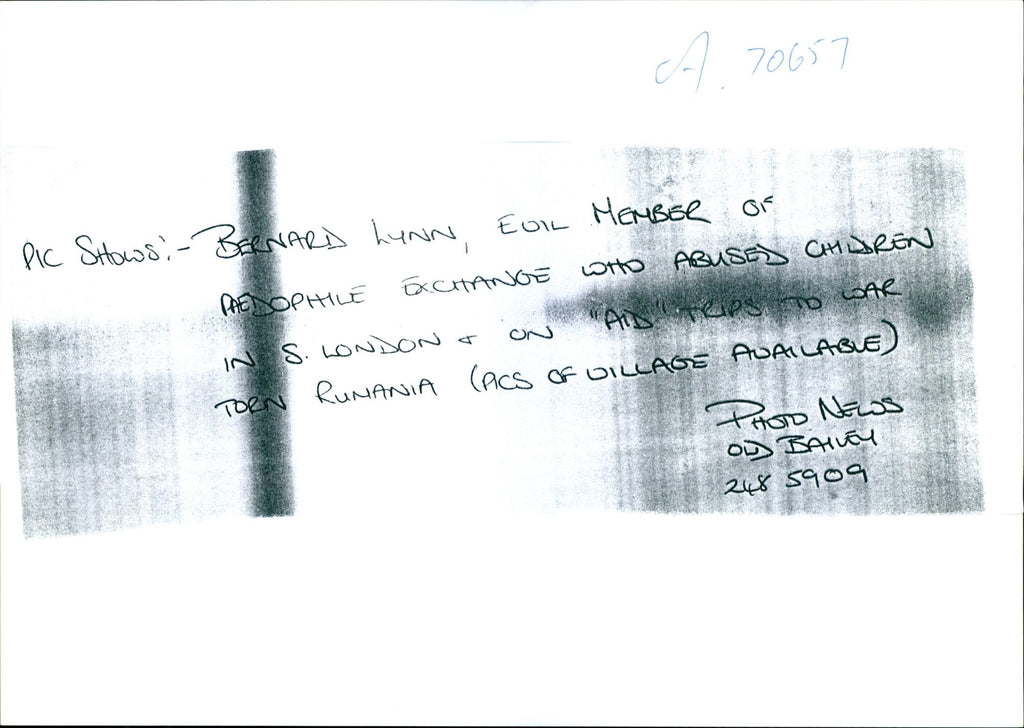 A. 70657
PIC SHOWS:- BERNARD LYNN, EVIL MEMBER OF
PAEDOPHILE EXCHANGE WHO ABUSED CHILDREN
IN S. LONDON + ON "AID" TRIPS TO WAR
TORN RUMANIA (PICS OF VILLAGE AVAILABLE)
PHOTO NEWS
OLD BAILEY
248 5909